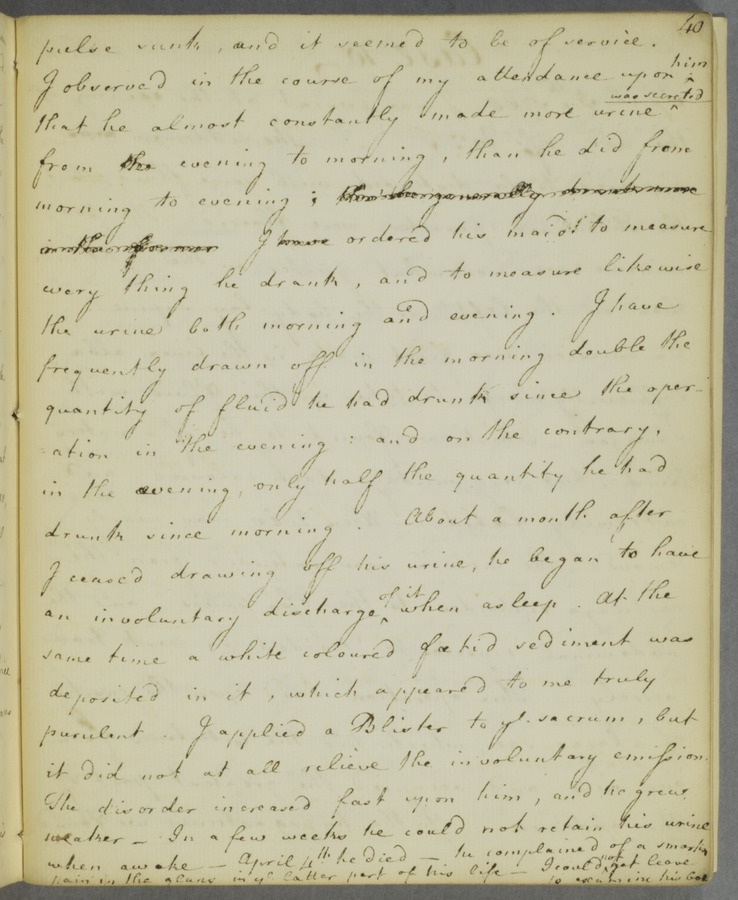 40
pulse sunk, and it seemed to be of service.
I observed in the course of my attendance upon ^ him
that he almost constantly made more urine ^ was secreted
from the evening to morning, than he did from
morning to evening; then he generally drank more
in the former I have ordered his maid to measure
every thing he drank, and to measure likewise
the urine both morning and evening. I have
frequently drawn off in the morning double the
quantity of fluid he had drunk since the oper-
-ation in the evening: and on the contrary,
in the evening, only half the quantity he had
drunk since morning. About a month after
I ceased drawing off his urine, he began to have
an involuntary discharge ^ of it when asleep. At the
same time a white coloured fœtid sediment was
deposited in it, which appeared to me truly
purulent. I applied a Blister to ye. sacrum, but
it did not at all relieve the involuntary emission.
The disorder increased fast upon him, and he grew
weaker – In a few weeks he could not retain his urine
when awake – April 4th he died – he complained of a smarting
pain in the glans in ye latter part of his life – I could ^ not get leave
to examine his body